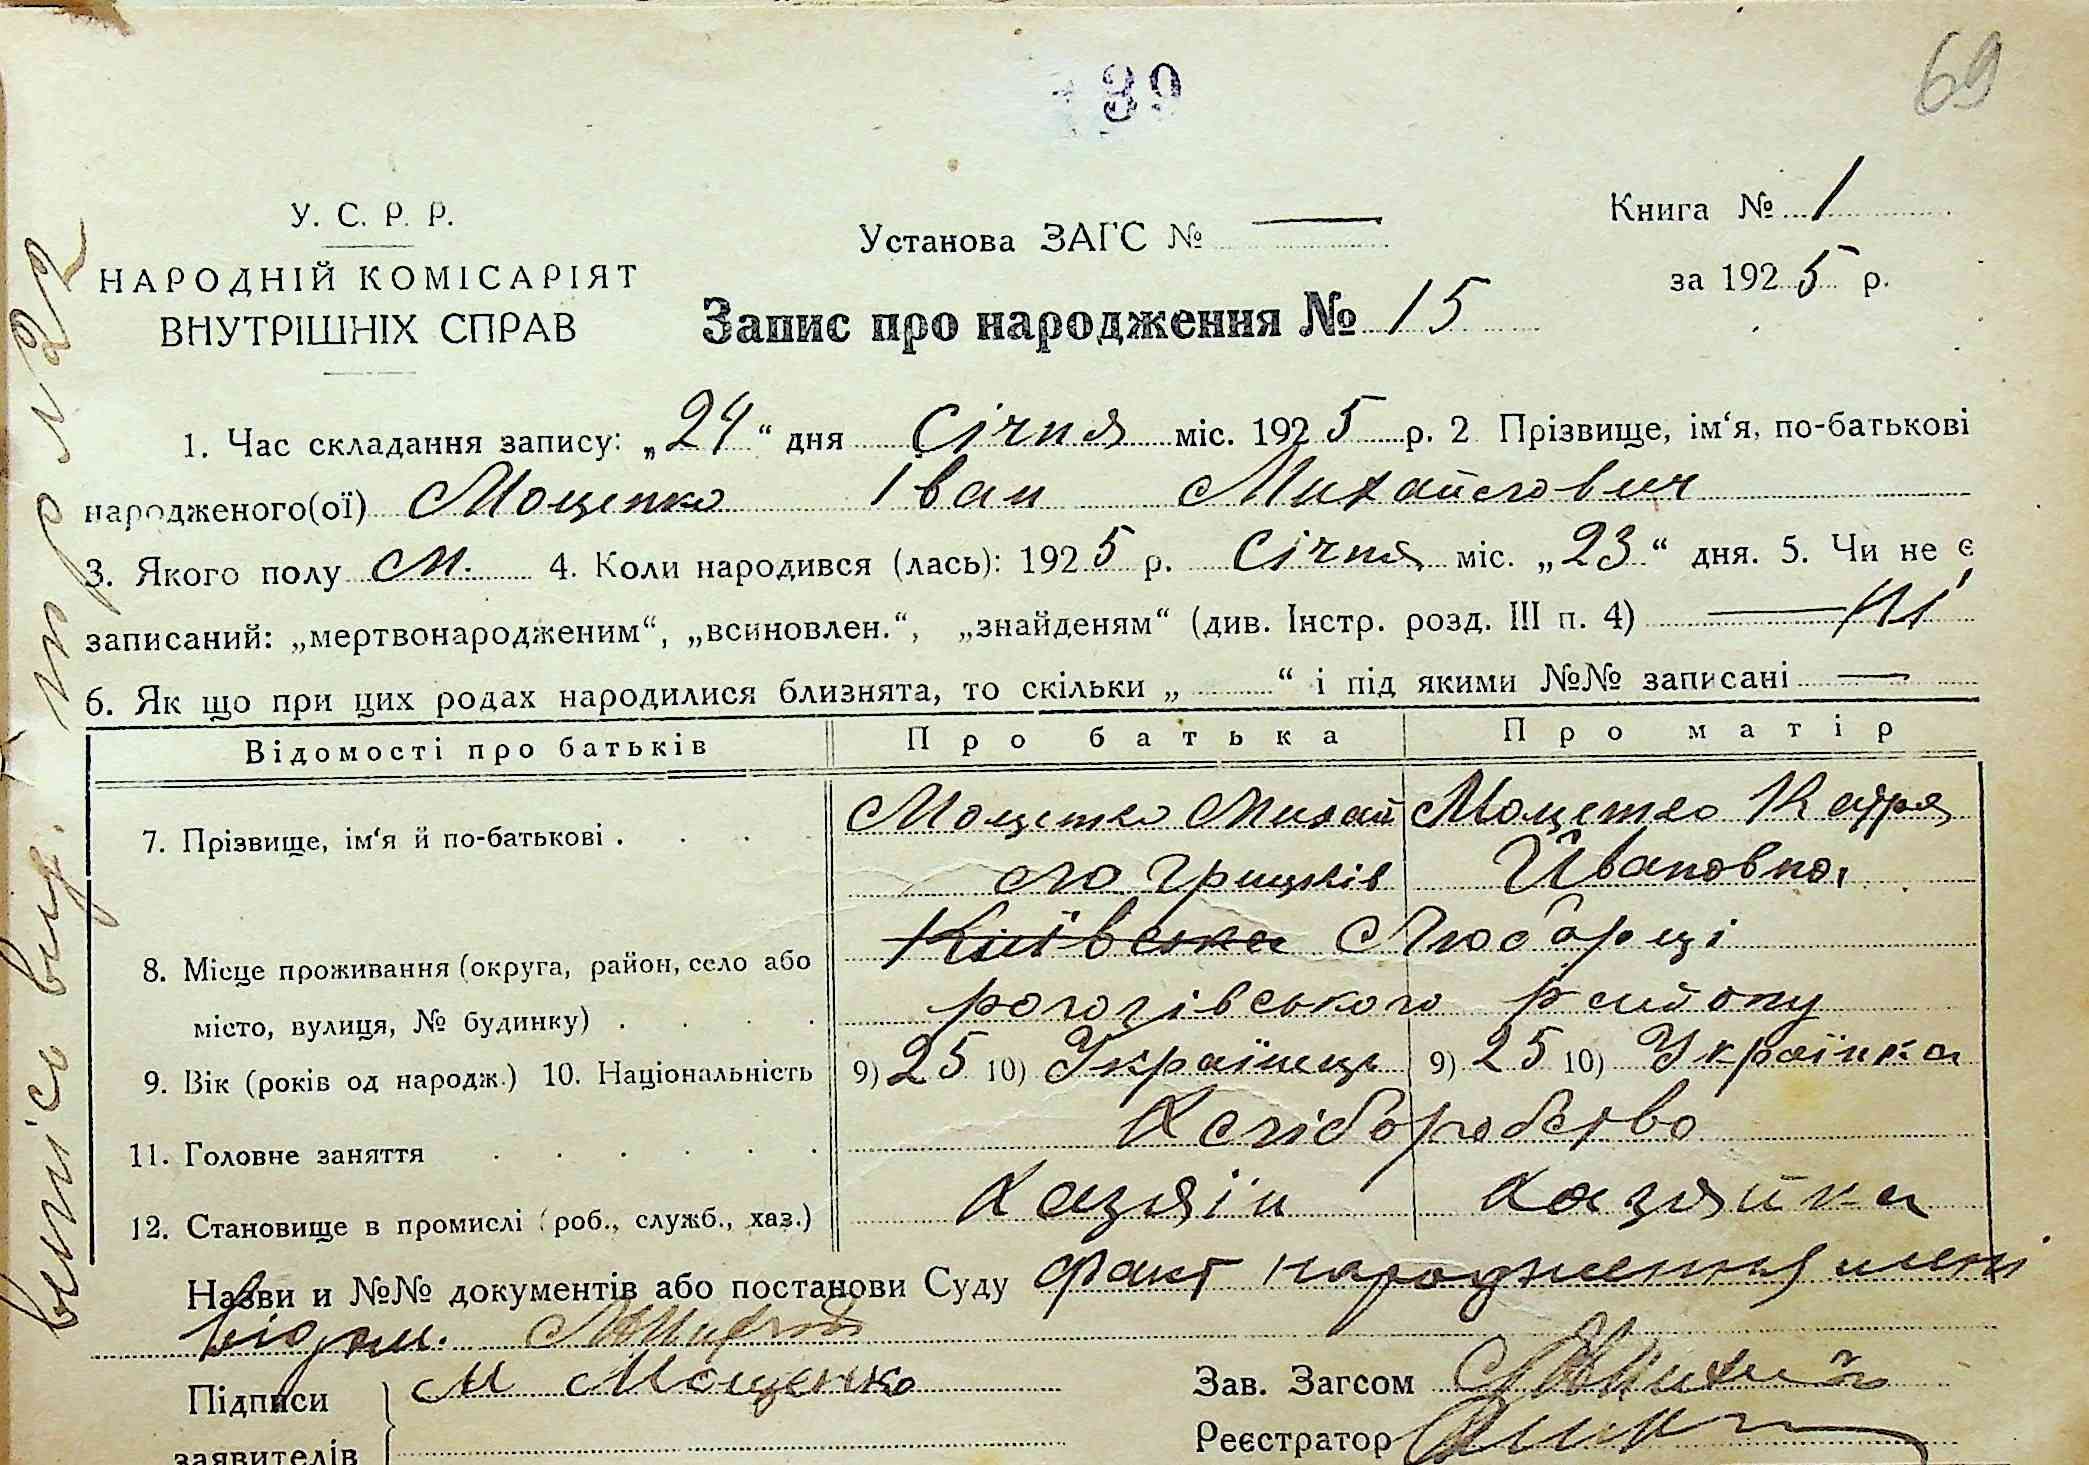 139
69
У. С. Р. Р.
НАРОДНІЙ КОМІСАРІЯТ
ВНУТРІШНІХ СПРАВ
Установа ЗАГС № —
Книга № 1
за 1925 р.
Запис про народження № 15
1. Час складання запису: „24“ дня Січня міс. 1925 р. 2 Прізвище, ім‘я, по-батькові
народженого(ої) Мощенко Іван Михайлович
3. Якого полу М. 4. Коли народився (лась): 1925 р. Січня міс. „23“ дня. 5. Чи не є
записаний: „мертвонародженим“, „всиновлен.“, „знайденям“ (див. Інстр. розд. III п. 4) — Ні
6. Як що при цих родах народилися близнята, то скільки „ “ і під якими №№ записані —
Відомості про батьків Про батька Про матір
7. Прізвище, ім‘я й по-батькові . Мощенко Михай Мощенко Катря
ло Грицьків Йвановна
8. Місце проживання (округа, район, село або Київська Любарці
місто, вулиця, № будинку) . рогозівського району
9. Вік (років од народж.) 10. Національність 9) 25 10) Українець 9) 25 10) Українка
11. Головне заняття Хліборобство
12. Становище в промислі (роб., служб., хаз.) Хазяїн хазяйка
Назви и №№ документів або постанови Суду факт народження мені
відом.
Підписи М Мощенко
заявителів
Зав. Загсом
Реєстратор